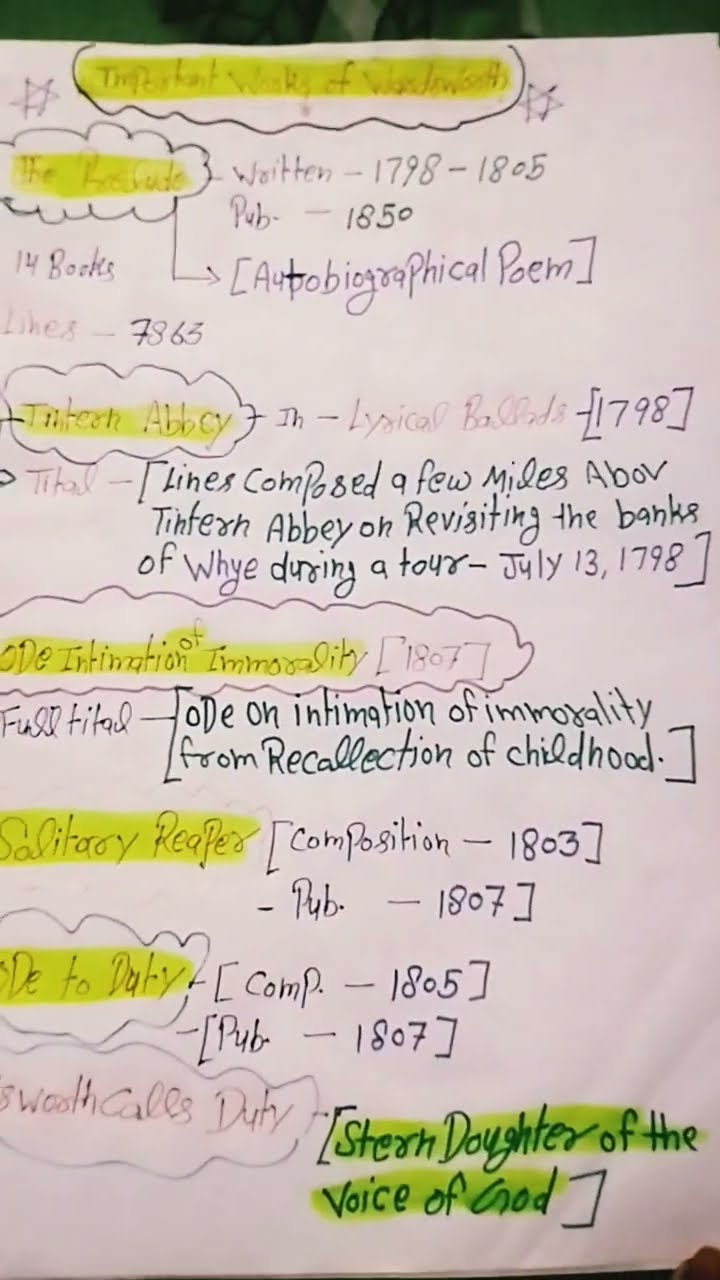 Important Works of Wordsworth
The Prelude - Written - 1798 - 1805
Pub. - 1850
14 Books → [Autobiographical Poem]
Lines - 7863
Tintern Abbey - In - Lyrical Ballads - [1798]
Tital - [Lines Composed a few Miles Abov
Tintern Abbey on Revisiting the banks
of Whye during a tour - July 13, 1798]
ODe Intimation of Immorality [1807]
Full tital - [ODe on intimation of immorality
from Recallection of childhood.]
Salitary Reaper [Composition - 1803]
- Pub. - 1807]
ODe to Duty - [Comp. - 1805]
- [Pub - 1807]
sworth Calls Duty - [Stern Doughter of the
Voice of God]